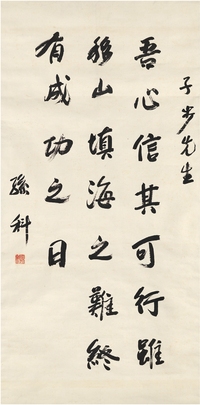 子步先生
吾心信其可行雖
移山填海之難終
有成功之日
孫科